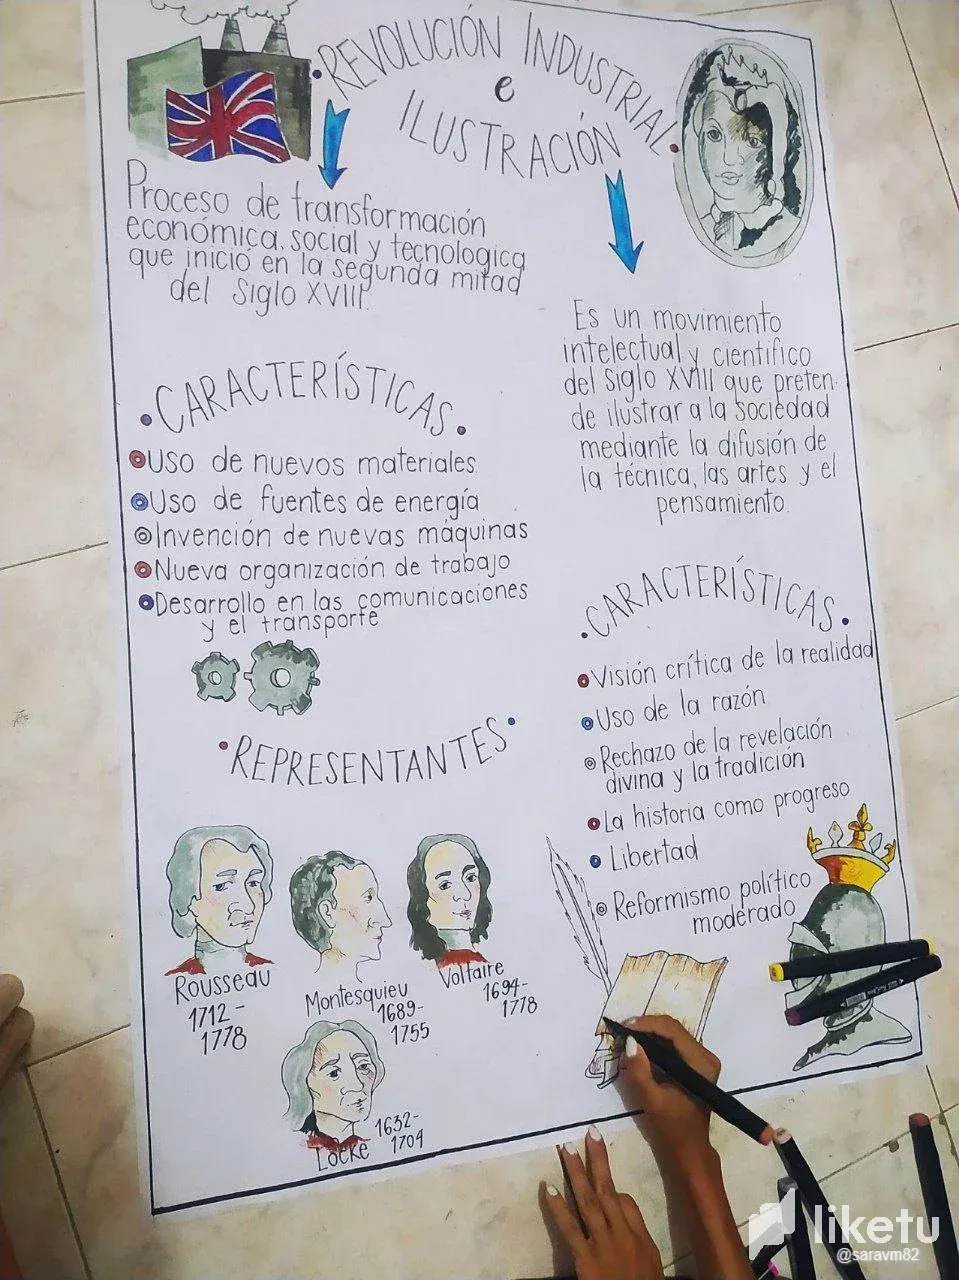 REVOLUCIÓN INDUSTRIAL
e
ILUSTRACIÓN
Proceso de transformación
económica, social y tecnologica
que inició en la segunda mitad
del Siglo XVIII.
CARACTERÍSTICAS
Uso de nuevos materiales
Uso de fuentes de energía
Invención de nuevas máquinas
Nueva organización de trabajo
Desarrollo en las comunicaciones
y el transporte
REPRESENTANTES
Rousseau
1712-
1778
Montesquieu
1689-
1755
Voltaire
1694-
1778
Locke
1632-
1704
Es un movimiento
intelectual y científico
del Siglo XVIII que preten-
de ilustrar a la sociedad
mediante la difusión de
la técnica, las artes y el
pensamiento.
CARACTERÍSTICAS
Visión crítica de la realidad
Uso de la razón
Rechazo de la revelación
divina y la tradición
La historia como progreso
Libertad
Reformismo político
moderado
liketu
@saravm82